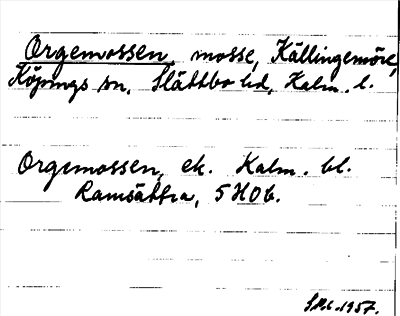 Orgemossen, mosse, Källingemöre,
Köpings sn, Slättbo hd, Kalm. l.
Orgemossen, ek. Kalm. bl.
Ramsättra, 5H0b.
1957.